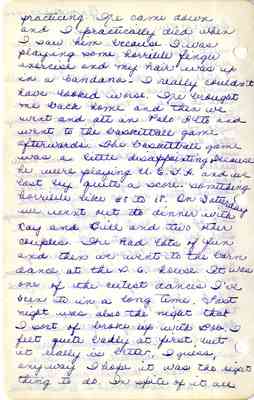 practicing. He came down
and I practically died when
I saw him because I was
playing some horrible finger
exercise and my hair was up
in a bandana. I really couldn't
have looked worse. He brought
me back home and then we
went and ate in Palo Alto and
went to the basketball game
afterwards. The basketball game
was a little disappointing because
we were playing U.S.F. and we
lost by quite a score. Something
horrible like to 18. On Saturday
we went out to dinner with
Kay and Bill and two other
couples. We had lots of fun
and then we went to the barn
dance at the house. It was
one of the cutest dances I've
been to in a long time. Last
night was also the night that
I sort of broke up with I
felt quite badly at first, but
it really is better, I guess,
anyway I hope it was the right
thing to do. In spite of it all